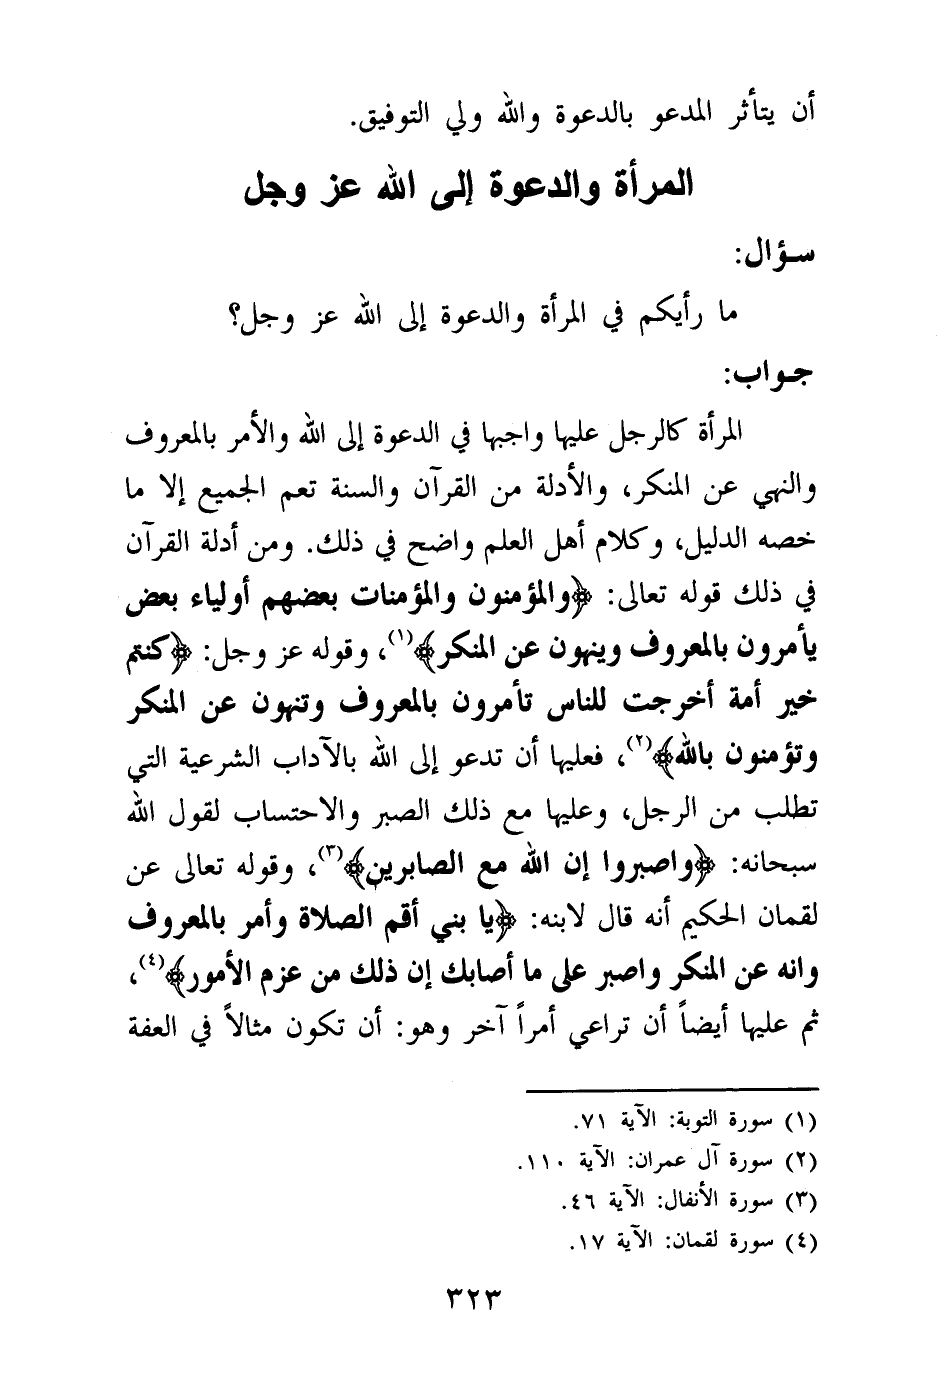 أن يتأثر المدعو بالدعوة والله ولي التوفيق.
المرأة والدعوة إلى الله عز وجل
سؤال:
ما رأيكم في المرأة والدعوة إلى الله عز وجل؟
جواب:
المرأة كالرجل عليها واجبها في الدعوة إلى الله والأمر بالمعروف
والنهي عن المنكر، والأدلة من القرآن والسنة تعم الجميع إلا ما
خصه الدليل، وكلام أهل العلم واضح في ذلك. ومن أدلة القرآن
في ذلك قوله تعالى: ﴿والمؤمنون والمؤمنات بعضهم أولياء بعض
يأمرون بالمعروف وينهون عن المنكر﴾(١)، وقوله عز وجل: ﴿كنتم
خير أمة أخرجت للناس تأمرون بالمعروف وتنهون عن المنكر
وتؤمنون بالله﴾(٢)، فعليها أن تدعو إلى الله بالآداب الشرعية التي
تطلب من الرجل، وعليها مع ذلك الصبر والاحتساب لقول الله
سبحانه: ﴿واصبروا إن الله مع الصابرين﴾(٣)، وقوله تعالى عن
لقمان الحكيم أنه قال لابنه: ﴿يا بني أقم الصلاة وأمر بالمعروف
وانه عن المنكر واصبر على ما أصابك إن ذلك من عزم الأمور﴾(٤)،
ثم عليها أيضاً أن تراعي أمراً آخر وهو: أن تكون مثالاً في العفة
(١) سورة التوبة: الآية ٧١.
(٢) سورة آل عمران: الآية ١١٠.
(٣) سورة الأنفال: الآية ٤٦.
(٤) سورة لقمان: الآية ١٧.
٣٢٣